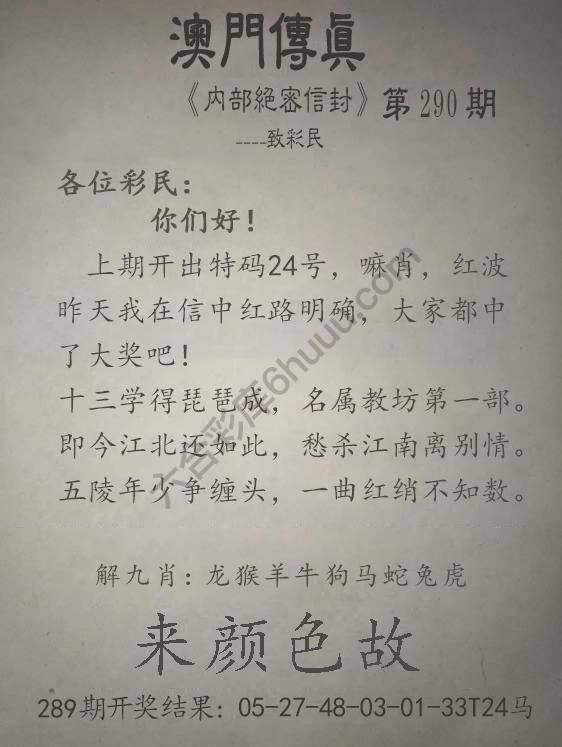 澳門傳眞
《内部絕密信封》第290期
----致彩民
各位彩民：
你们好！
上期开出特码24号，嘛肖，红波
昨天我在信中红路明确，大家都中
了大奖吧！
十三学得琵琶成，名属教坊第一部。
即今江北还如此，愁杀江南离别情。
五陵年少争缠头，一曲红绡不知数。
六合彩库6huuu.com
解九肖：龙猴羊牛狗马蛇兔虎
来颜色故
289期开奖结果：05-27-48-03-01-33T24马